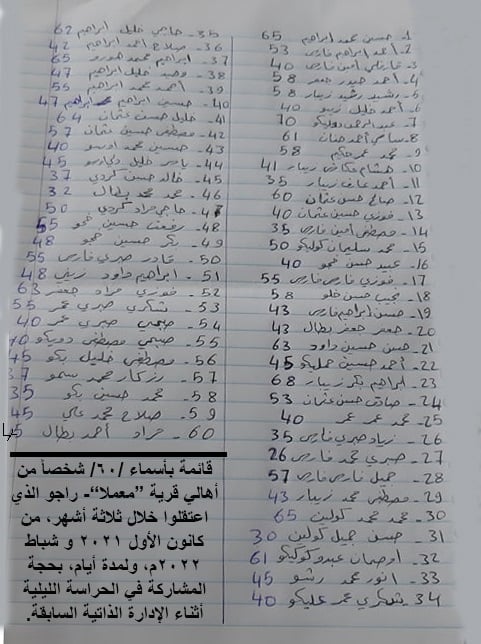 1- حسين محمد ابراهيم 65
2- أحمد ابراهيم فارس 53
3- فارس أمين فارس 40
4- أحمد حيدر جعفر 58
5- رشيد رشيد زيبار 58
6- أحمد خليل زيبو 40
7- عبد الرحمن 70
8- سامي أحمد حنان 61
9- محمد عمر حكيم 58
10- هشام عكاش زيبار 41
11- أحمد عارف زيبار 35
12- صالح حسن عثمان 60
13- فوزي حسين عثمان 40
14- مصطفى أمين فارس 35
15- محمد سليمان كوليكو 50
16- عبيد حسن حمو 40
17- فوزي فارس فارس 55
18- نجيب حسن خلو 58
19- حسن ابراهيم فارس 43
20- جعفر جعفر بطال 43
21- حسن حسين داود 63
22- أحمد حسين عمليكو 45
23- ابراهيم بكر زيبار 68
24- صادق حسن عثمان 53
25- محمد عمر عمر 40
26- زياد صبري فارس 35
27- صبري محمد فارس 26
28- جميل فارس فارس 57
29- مصطفى محمد زيبار 43
30- محمد محمد كولين 65
31- حسن جميل كولين 30
32- اوصمان عبدو كوليكو 61
33- انور محمد رشو 45
34- شكري عمر عليكو 40
35- حاجي خليل ابراهيم 62
36- صلاح أحمد ابراهيم 42
37- ابراهيم محمد حورو 65
38- وحيد خليل ابراهيم 47
39- أحمد محمد ابراهيم 55
40- حسين ابراهيم محمد ابراهيم 47
41- خليل حسن عثمان 64
42- مصطفى حسين عثمان 57
43- حسين محمد اوسو 40
44- ياسر خليل 45
45- خالد حسن كردي 37
46- محمد محمد بطال 32
47- حاجي مراد كردي 50
48- رفعت حسين حمو 55
49- بكر حسين حمو 48
50- قادر صبري فارس 55
51- ابراهيم داود زينل 48
52- فوزي مراد جعفر 63
53- شكري صبري عمر 55
54- صبحي صبري عمر 40
55- صبحي مصطفى
56- مصطفى خليل بكو 45
57- رزكار محمد سمو 37
58- محمد حسين بكو 35
59- صلاح محمد علي 45
60- مراد أحمد بطال 45
قائمة بأسماء /٦٠/ شخصاً من
أهالي قرية "معملا"- راجو الذي
اعتقلوا خلال ثلاثة أشهر، من
كانون الأول ٢٠٢١ و شباط
٢٠٢٢م، ولمدة أيام، بحجة
المشاركة في الحراسة الليلية
أثناء الإدارة الذاتية السابقة.